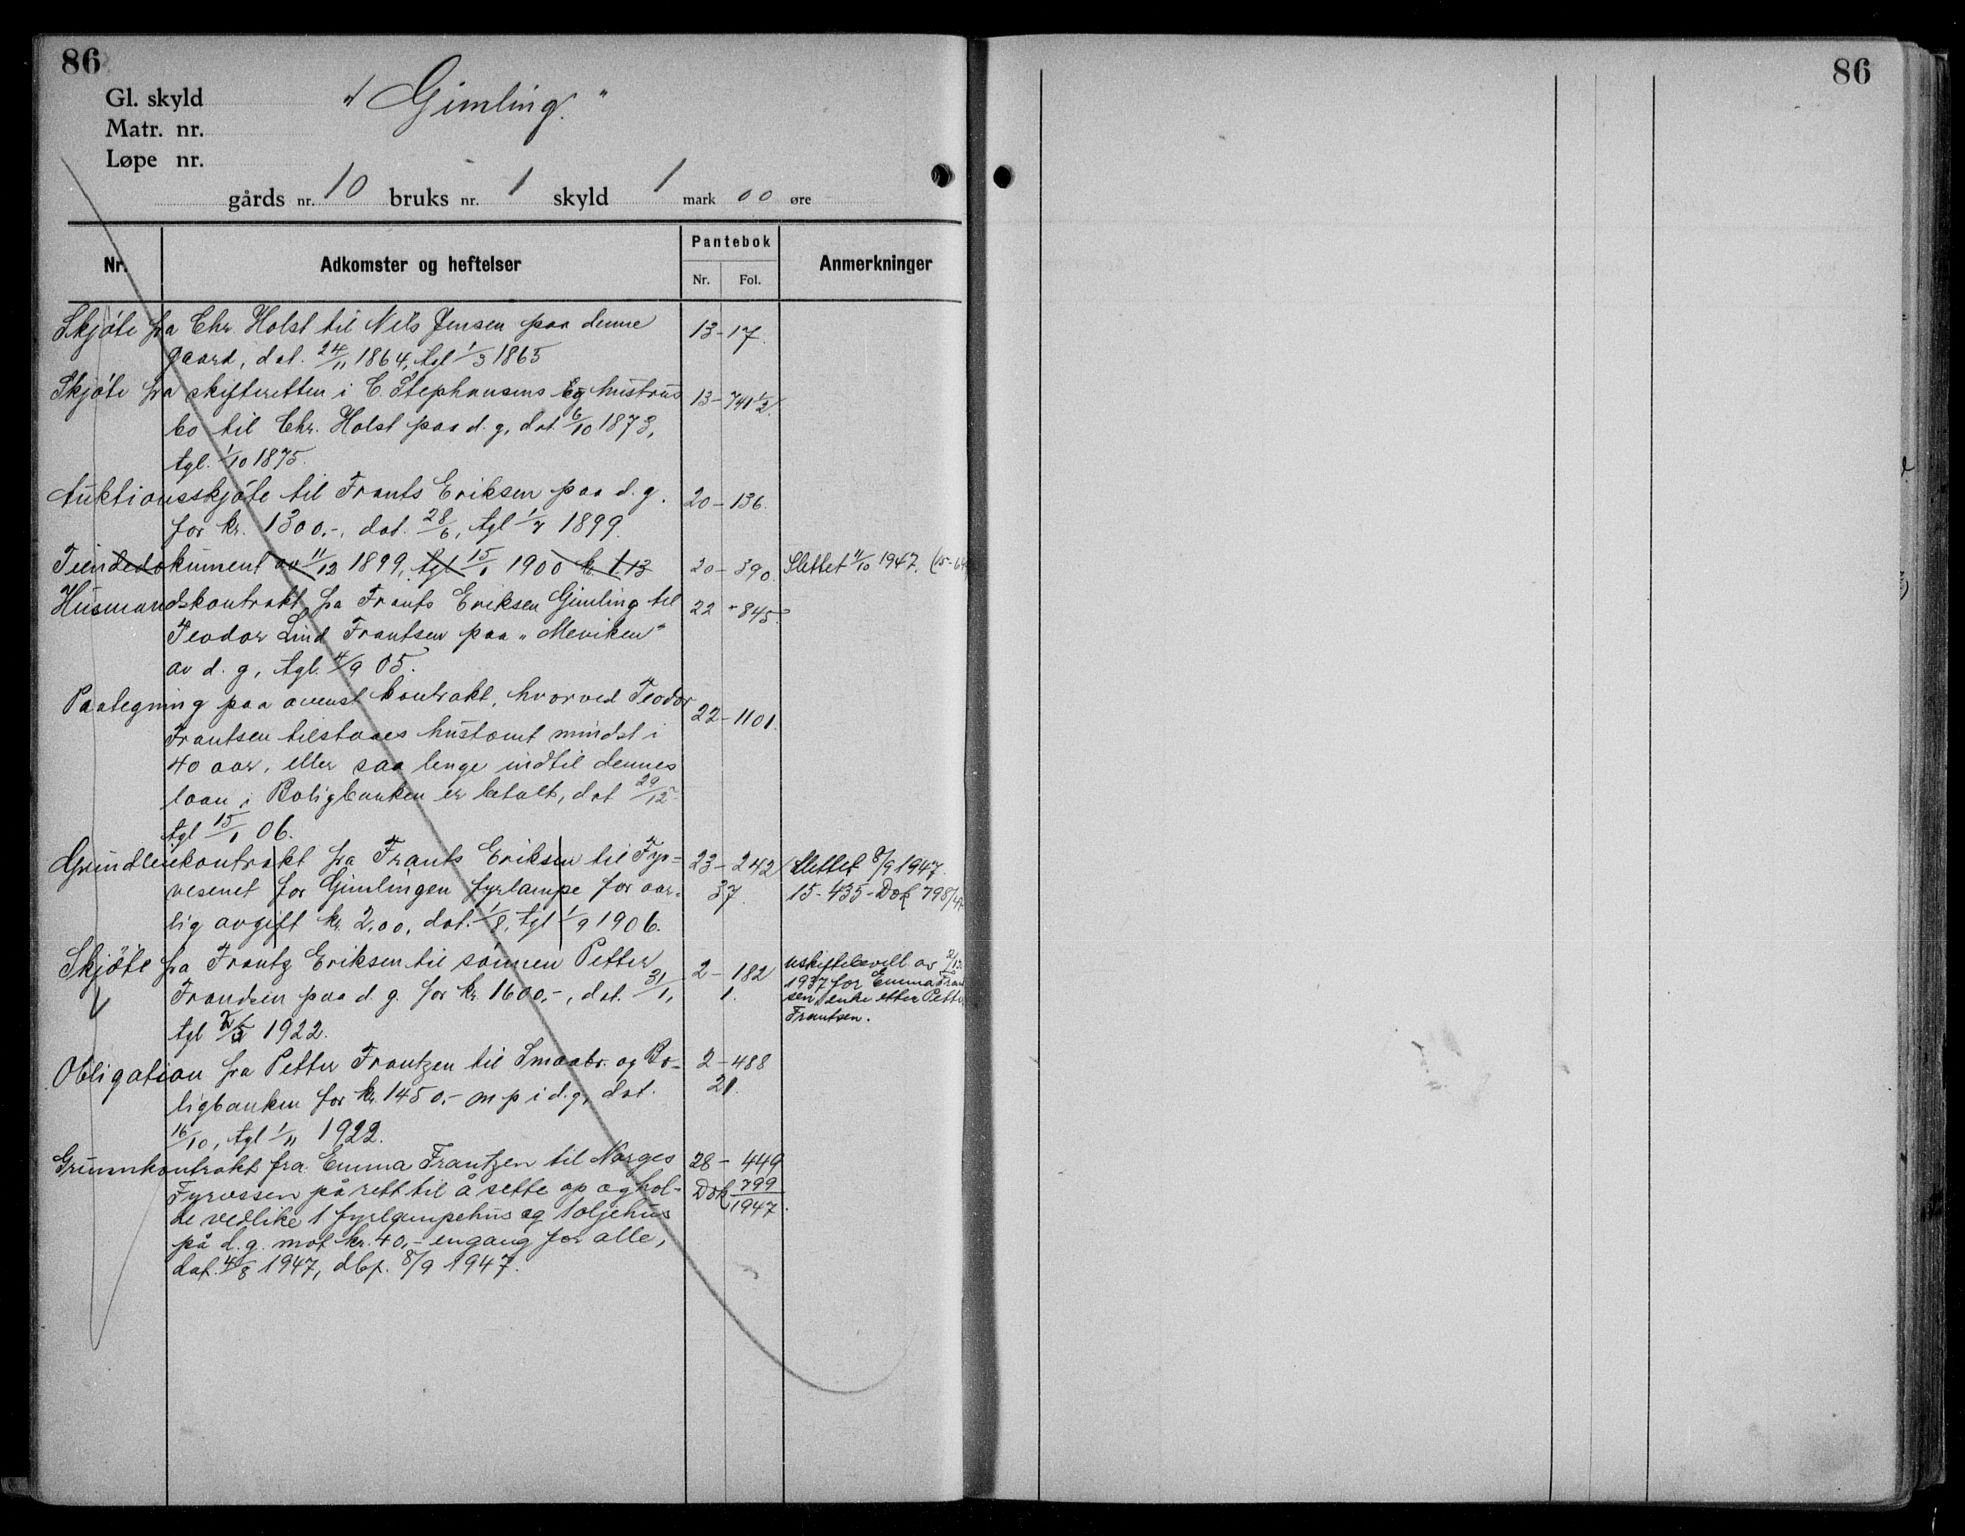 86
86
Gl. skyld
"Gimling."
Matr. nr.
Løpe nr.
gårds nr. 10 bruks nr. 1 skyld 1 mark 00 øre
Nr. Adkomster og heftelser Pantebok Anmerkninger
Nr. Fol.
Skjöte fra Chr. Holst til Nils Jensen paa denne 13-17.
gaard, dat. 24/11 1864, tgl 1/3 1865
Skjöte fra skifteretten i C. Stephansens og hustrus 13-741 1/2.
bo til Chr. Holst paa d. g, dat 6/10 1873,
tgl. 1/10 1875.
Auktionsskjöte til Frants Eriksen paa d. g. 20-136.
for kr. 1300.-, dat. 28/6, tgl 1/7 1899.
Tiendedokument av 11/12 1899, tgl 15/1 1900 kr 1.13 20-390. Slettet 11/10 1947.
Husmandskontrakt fra Frants Eriksen Gimling til 22-845
Teodor Lind Frantsen paa "Meviken"
av d. g, tgl. 4/9 05.
Paategning paa ovenst kontrakt, hvorved Teodor 22-1101.
Frantsen tilstaaes hustomt mindst i
40 aar, eller saa lenge indtil dennes
laan i Boligbanken er betalt, dat 29/12
tgl 15/1 06.
Grundleiekontrakt fra Frants Eriksen til Fyr= 23-242 Slettet 8/9 1947.
vesenet for Gimlingen fyrlampe for aar- 37. 15-435-Dok 798/47
lig avgift kr. 2,00, dat. 1/8, tgl 1/9 1906.
Skjöte fra Frantz Eriksen til sönnen Petter 2-182 uskiftebevill. av
Frandsen paa d. g. for kr. 1600,-, dat. 31/1, 1. 1937 for Emma Frant
tgl 1922. sen, enke etter Petter
Frantsen.
Obligation fra Petter Frantzen til Smaabr. og Bo- 2-488
ligbanken for kr. 1450.- m p i d. g, dat. 21.
16/10, tgl 1/11 1922.
Grunnkontrakt fra Emma Frantzen til Norges 28-449
Fyrvesen på rett til å sette op og hol- Dok 799/1947.
de vedlike 1 fyrlampehus og 1 oljehus
på d. g. mot kr. 40,- engang for alle,
dat. 4/8 1947, dbf. 8/9 1947.